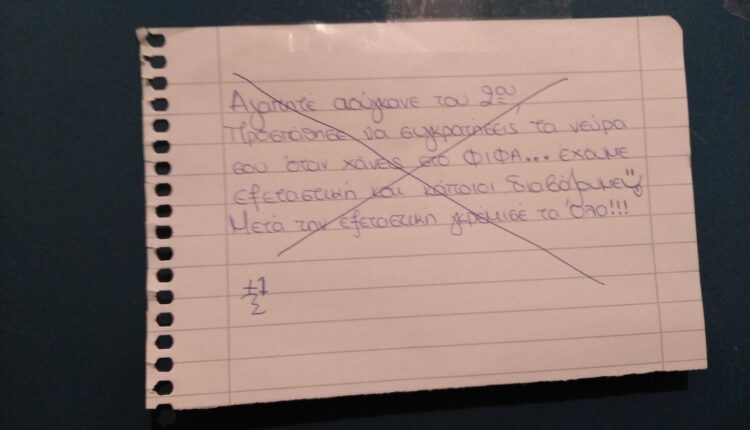 Αγαπητέ αούγκανε του 2ου,
Προσπάθησε να συγκρατήσεις τα νεύρα
σου όταν χάνεις στο ΦΙΦΑ... έχουμε
εξεταστική και κάποιοι διαβάζουμε"
Μετά την εξεταστική γκρέμισέ τα όλα!!!
+1
Σ